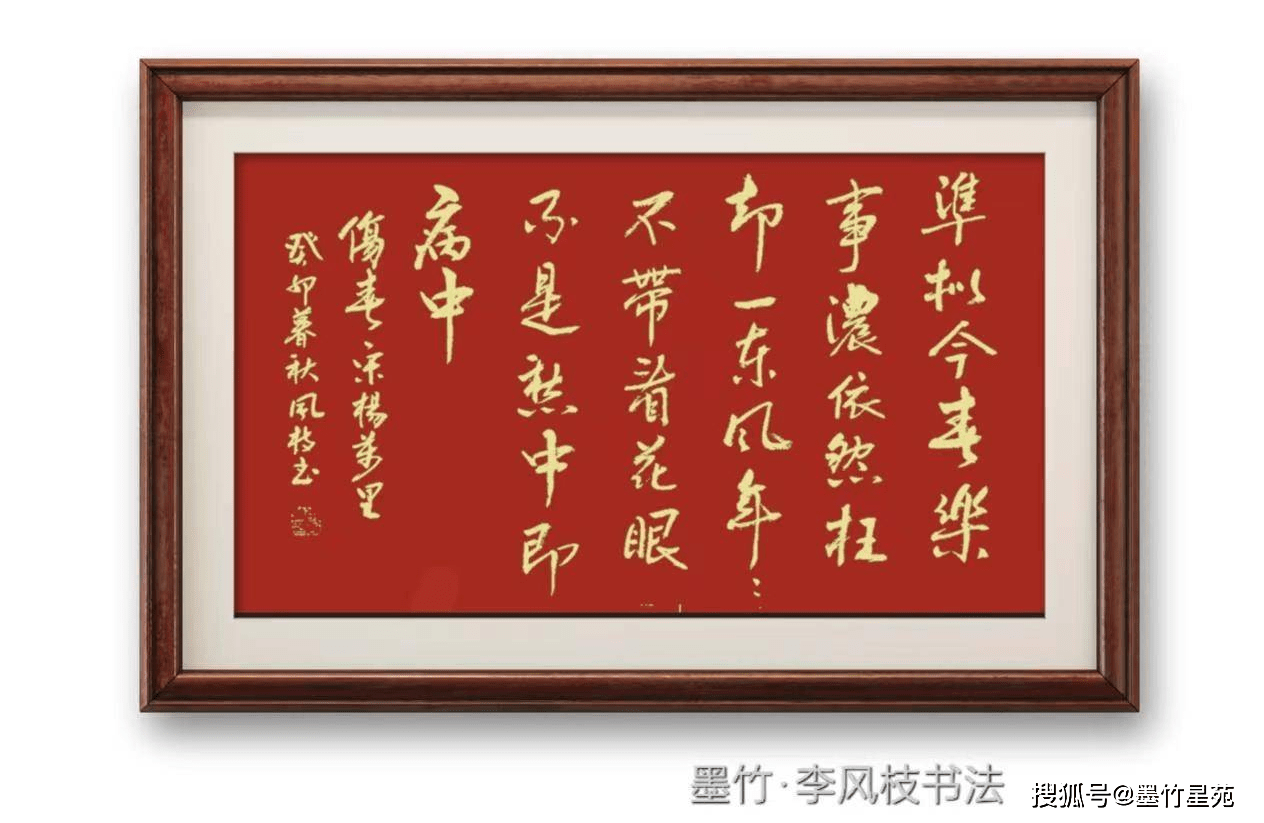 準拟今春樂
事濃依然枉
却一东风年〻
不帶看花眼
不是愁中即
病中
傷春宋楊萬里
癸卯暮秋風枝书
墨竹·李风枝书法
搜狐号@墨竹星苑